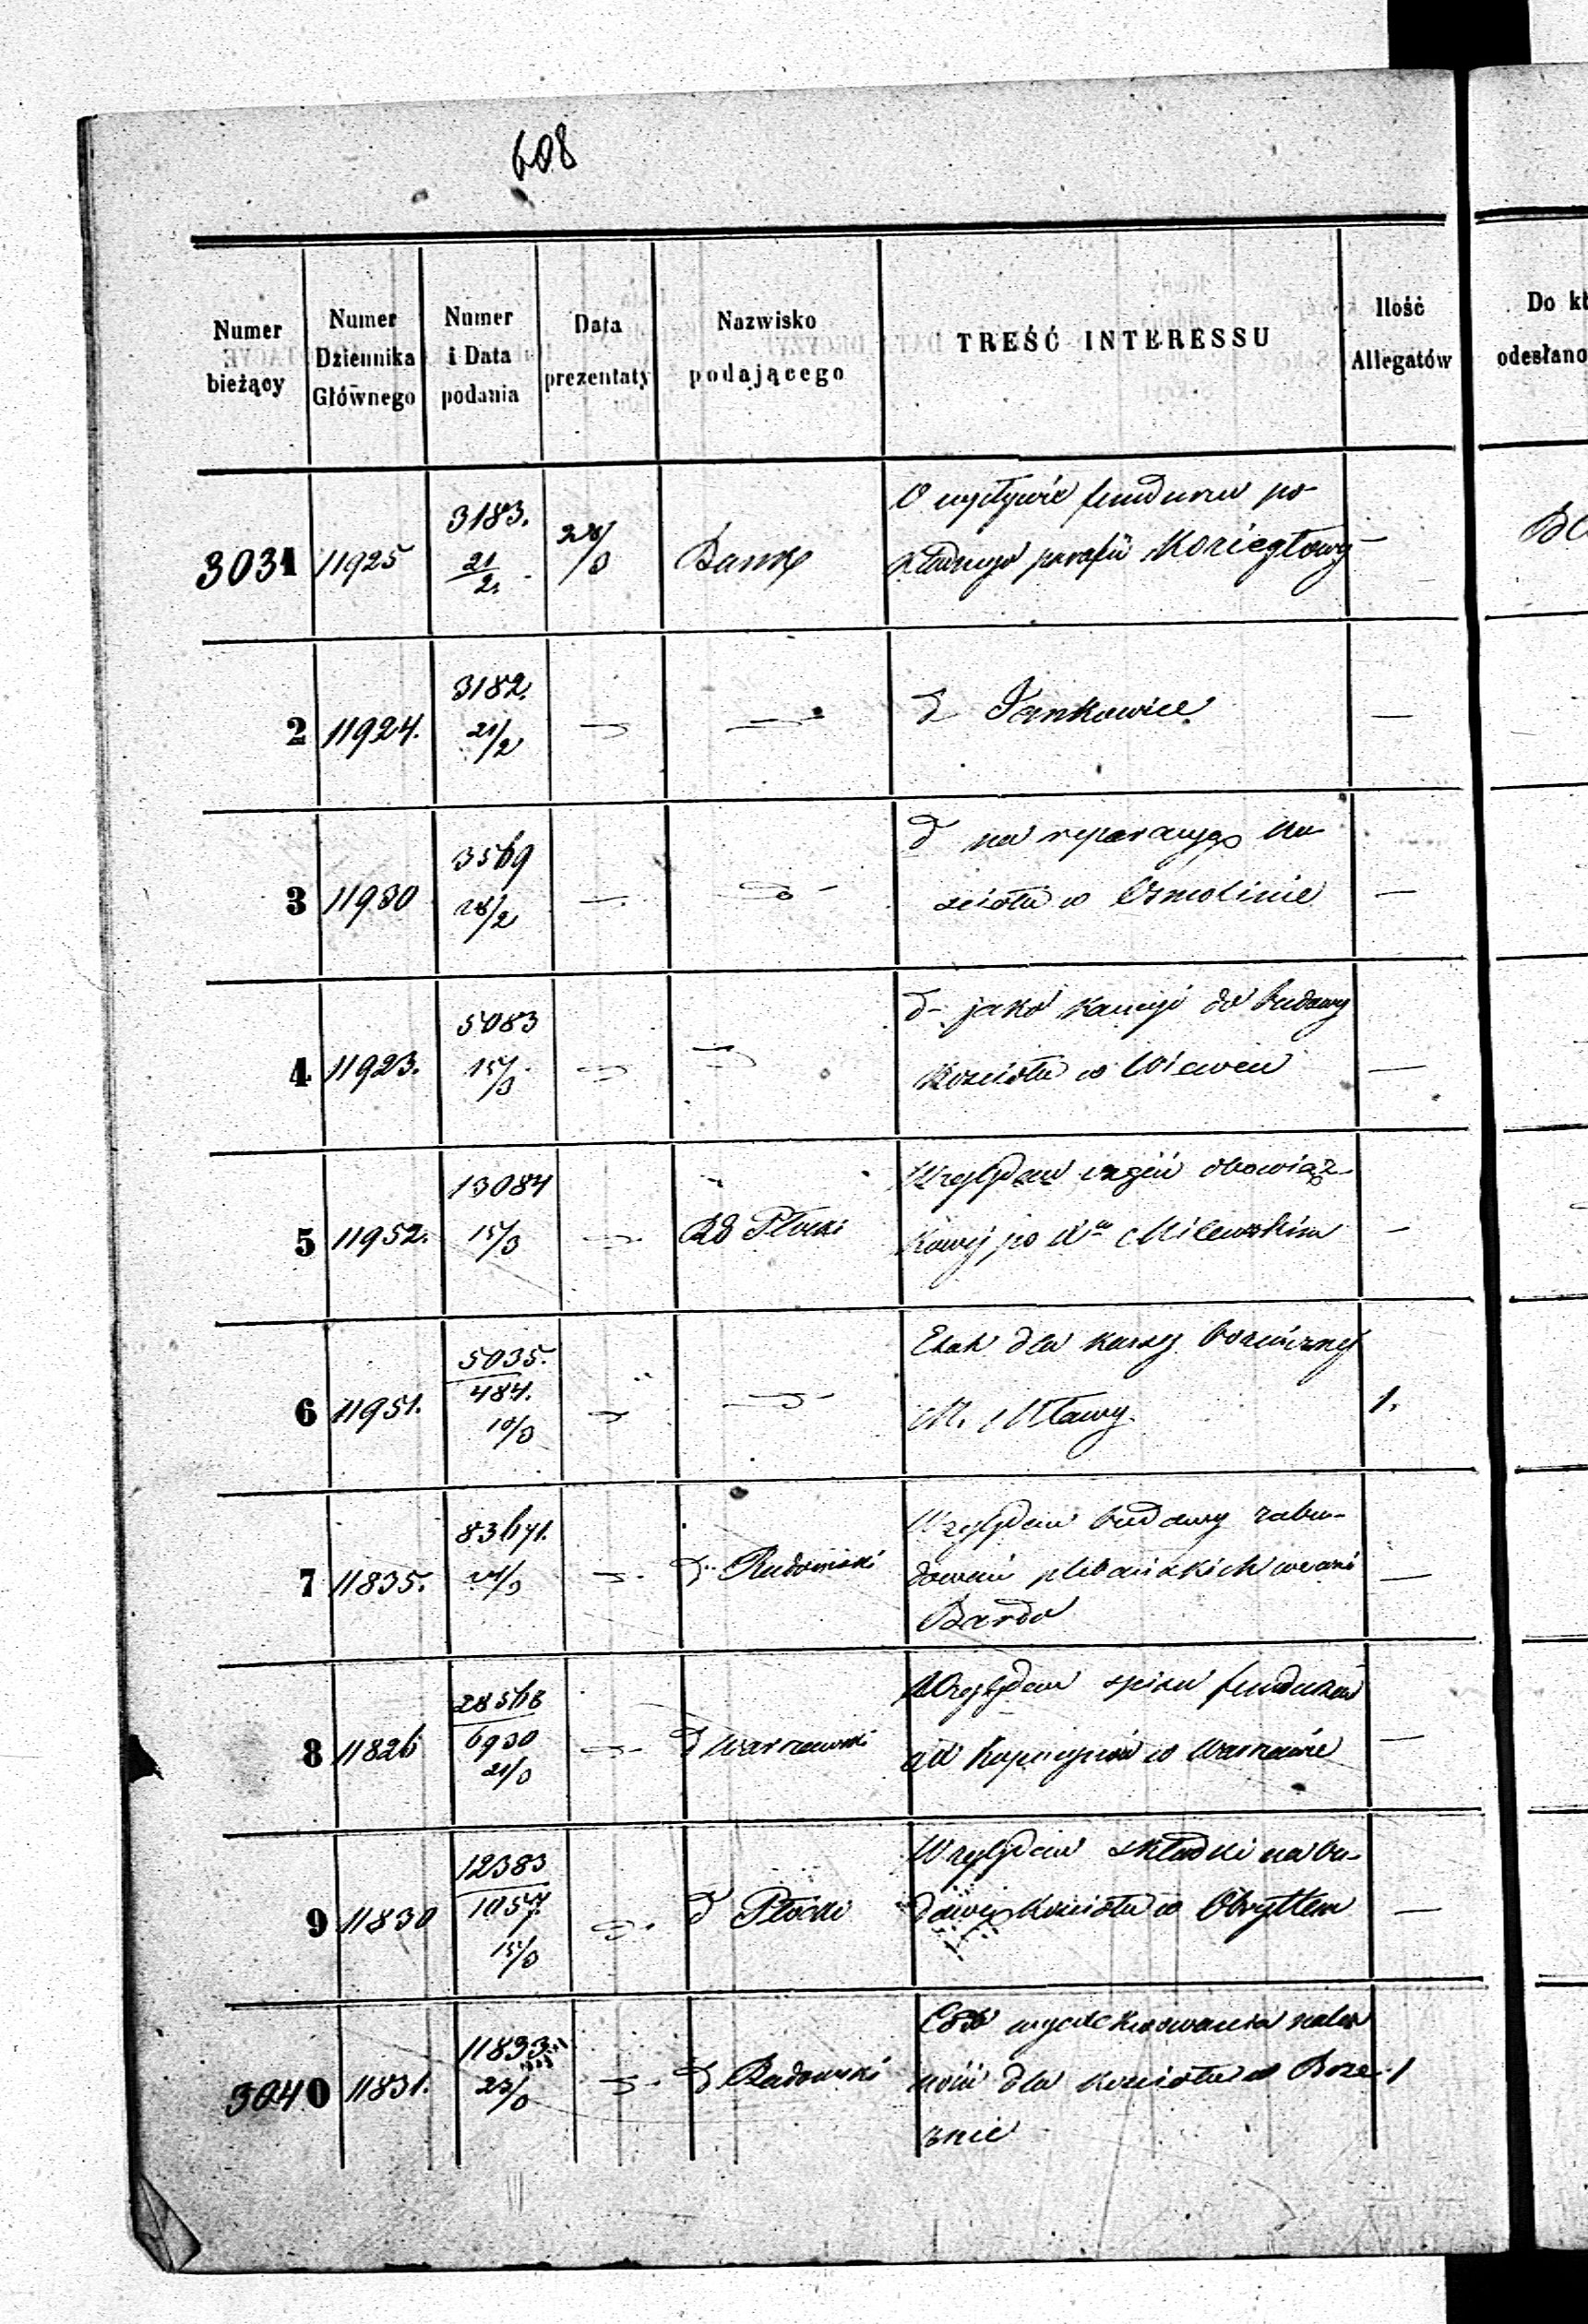 608
Numer bieżący
Numer Dziennika Głównego
Numer i Data podania
Data prezentaty
Nazwisko podającego
TREŚĆ INTERESSU
Ilość Allegatów
Do kt
odesłano
3031 11925 3183. 21/2. 28/3 Bank O wpływie funduszu po-
kładnego parafii Koziegłowy —
2 11924. 3182. 21/2 d Jankowice —
3 11930 3569 28/2 d na reparacyą ko-
ścioła w Osmolinie —
4 11923. 5083 15/3 d jako kaucyi do budowy
Kościoła w —
5 11952. 13084 15/3 Rd Płocki Względem obowiąz-
kowej po Milewskim —
6 11951. 5035. 484. 10/3 Etat dla kassy Bożnicznej
M. Mławy. 1.
7 11835. 83671. 21/3 d Radomski Względem budowy zabu-
dowań plebańskich we wsi —
Bardo
8 11826 28568 6930 21/3 d Warszawski Względem spisu funduszów
Kapucynów w Warszawie —
9 11830 12383 1057 15/3 d Płocki Względem składki na bu-
dowę kościoła w Obrytem —
3040 11831. 11893 23/3 d Radomski
dla kościoła w 1